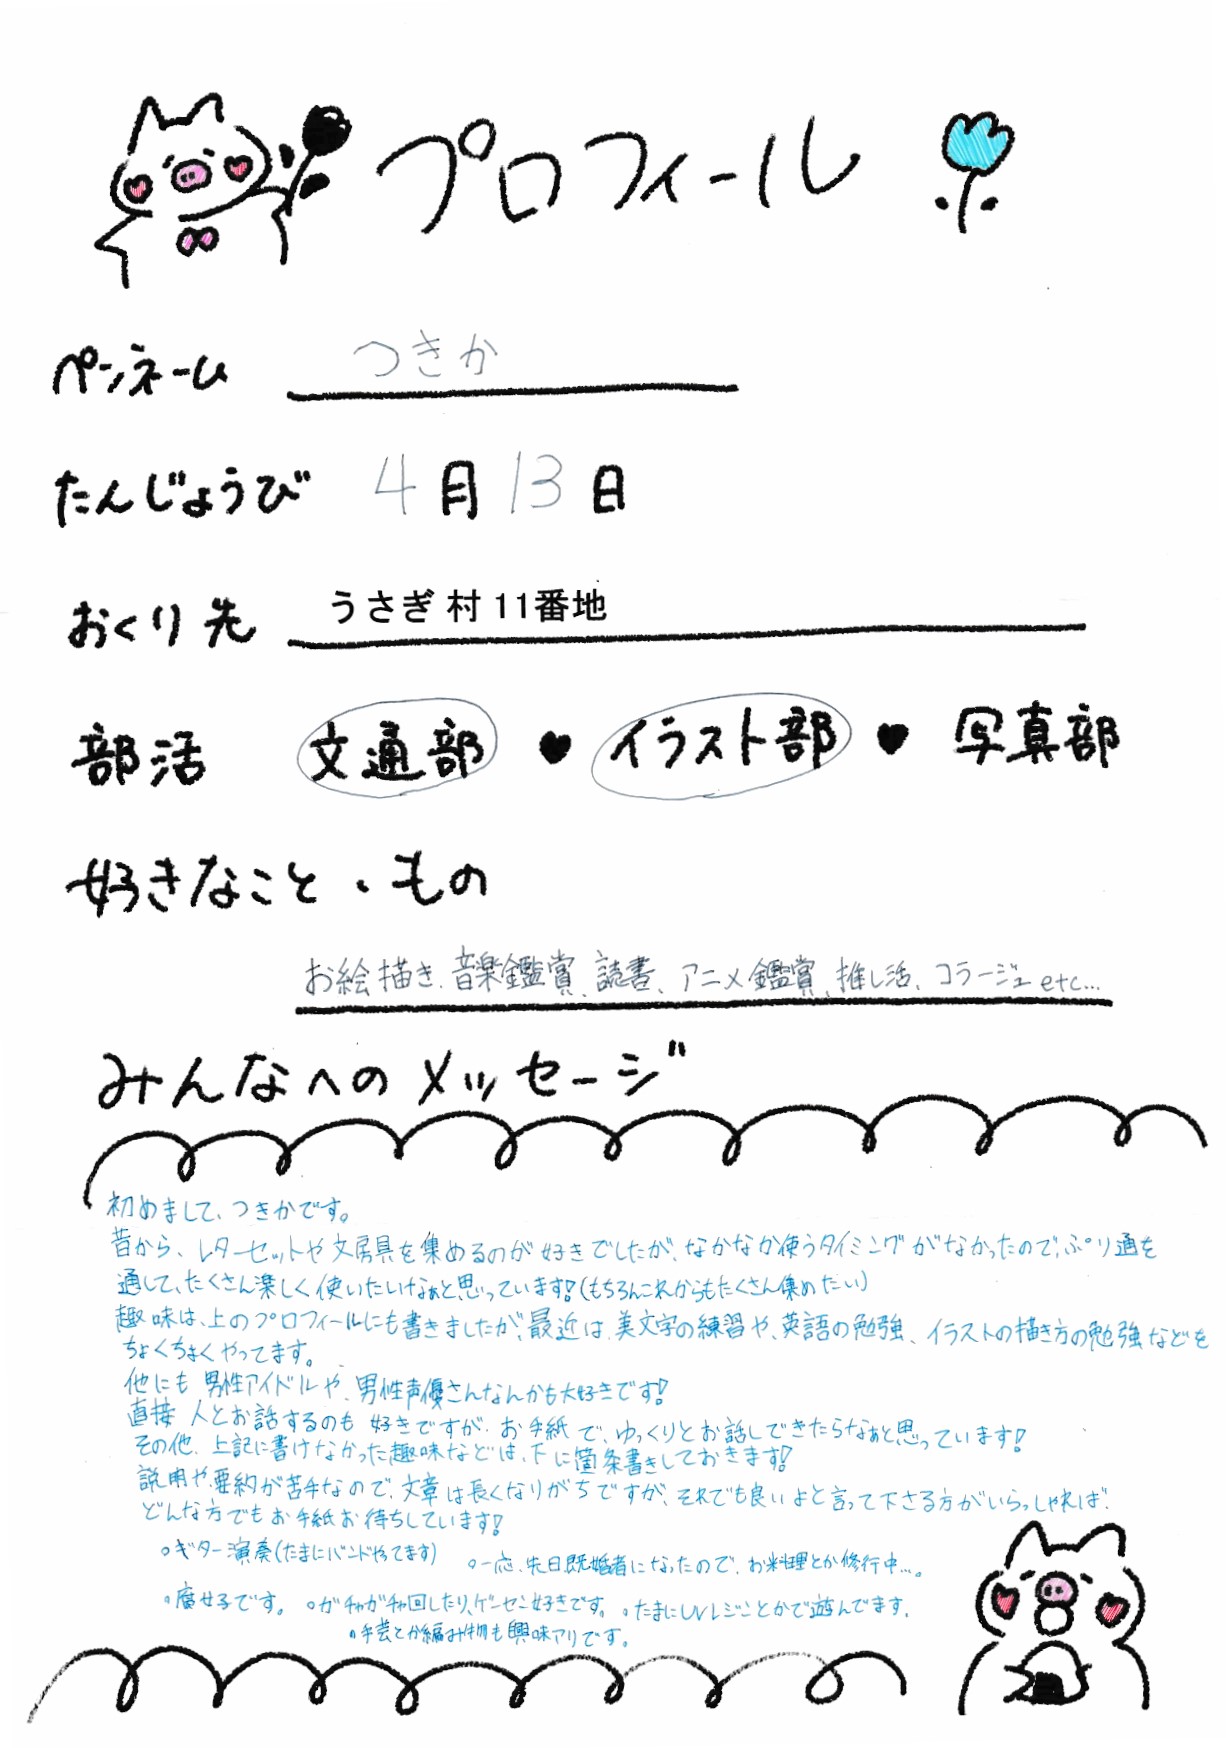 プロフィール
ペンネーム つきか
たんじょうび 4月13日
おくり先 うさぎ村11番地
部活 文通部 ♥ イラスト部 ♥ 写真部
好きなこと・もの
お絵描き、音楽鑑賞、読書、アニメ鑑賞、推し活、コラージュetc...
みんなへのメッセージ
初めまして、つきかです。
昔から、レターセットや文房具を集めるのが好きでしたが、なかなか使うタイミングがなかったので、ぷり通を
通して、たくさん楽しく使いたいなぁと思っています!(もちろんこれからもたくさん集めたい)
趣味は、上のプロフィールにも書きましたが、最近は、美文字の練習や、英語の勉強、イラストの描き方の勉強などを
ちょくちょくやってます。
他にも男性アイドルや、男性声優さんなんかも大好きです!
直接人とお話するのも好きですが、お手紙で、ゆっくりとお話しできたらなぁと思っています!
その他、上記に書けなかった趣味などは、下に箇条書きしておきます!
説明や、要約が苦手なので、文章は長くなりがちですが、それでも良いよと言って下さる方がいらっしゃれば、
どんな方でもお手紙お待ちしています!
○ギター演奏(たまにバンドやってます) ○一応、先日既婚者になったので、お料理とか修行中...。
○腐女子です。 ○ガチャガチャ回したり、ゲーセン好きです。 ○たまにUVレジンとかで遊んでます。
○手芸とか編み物も興味アリです。